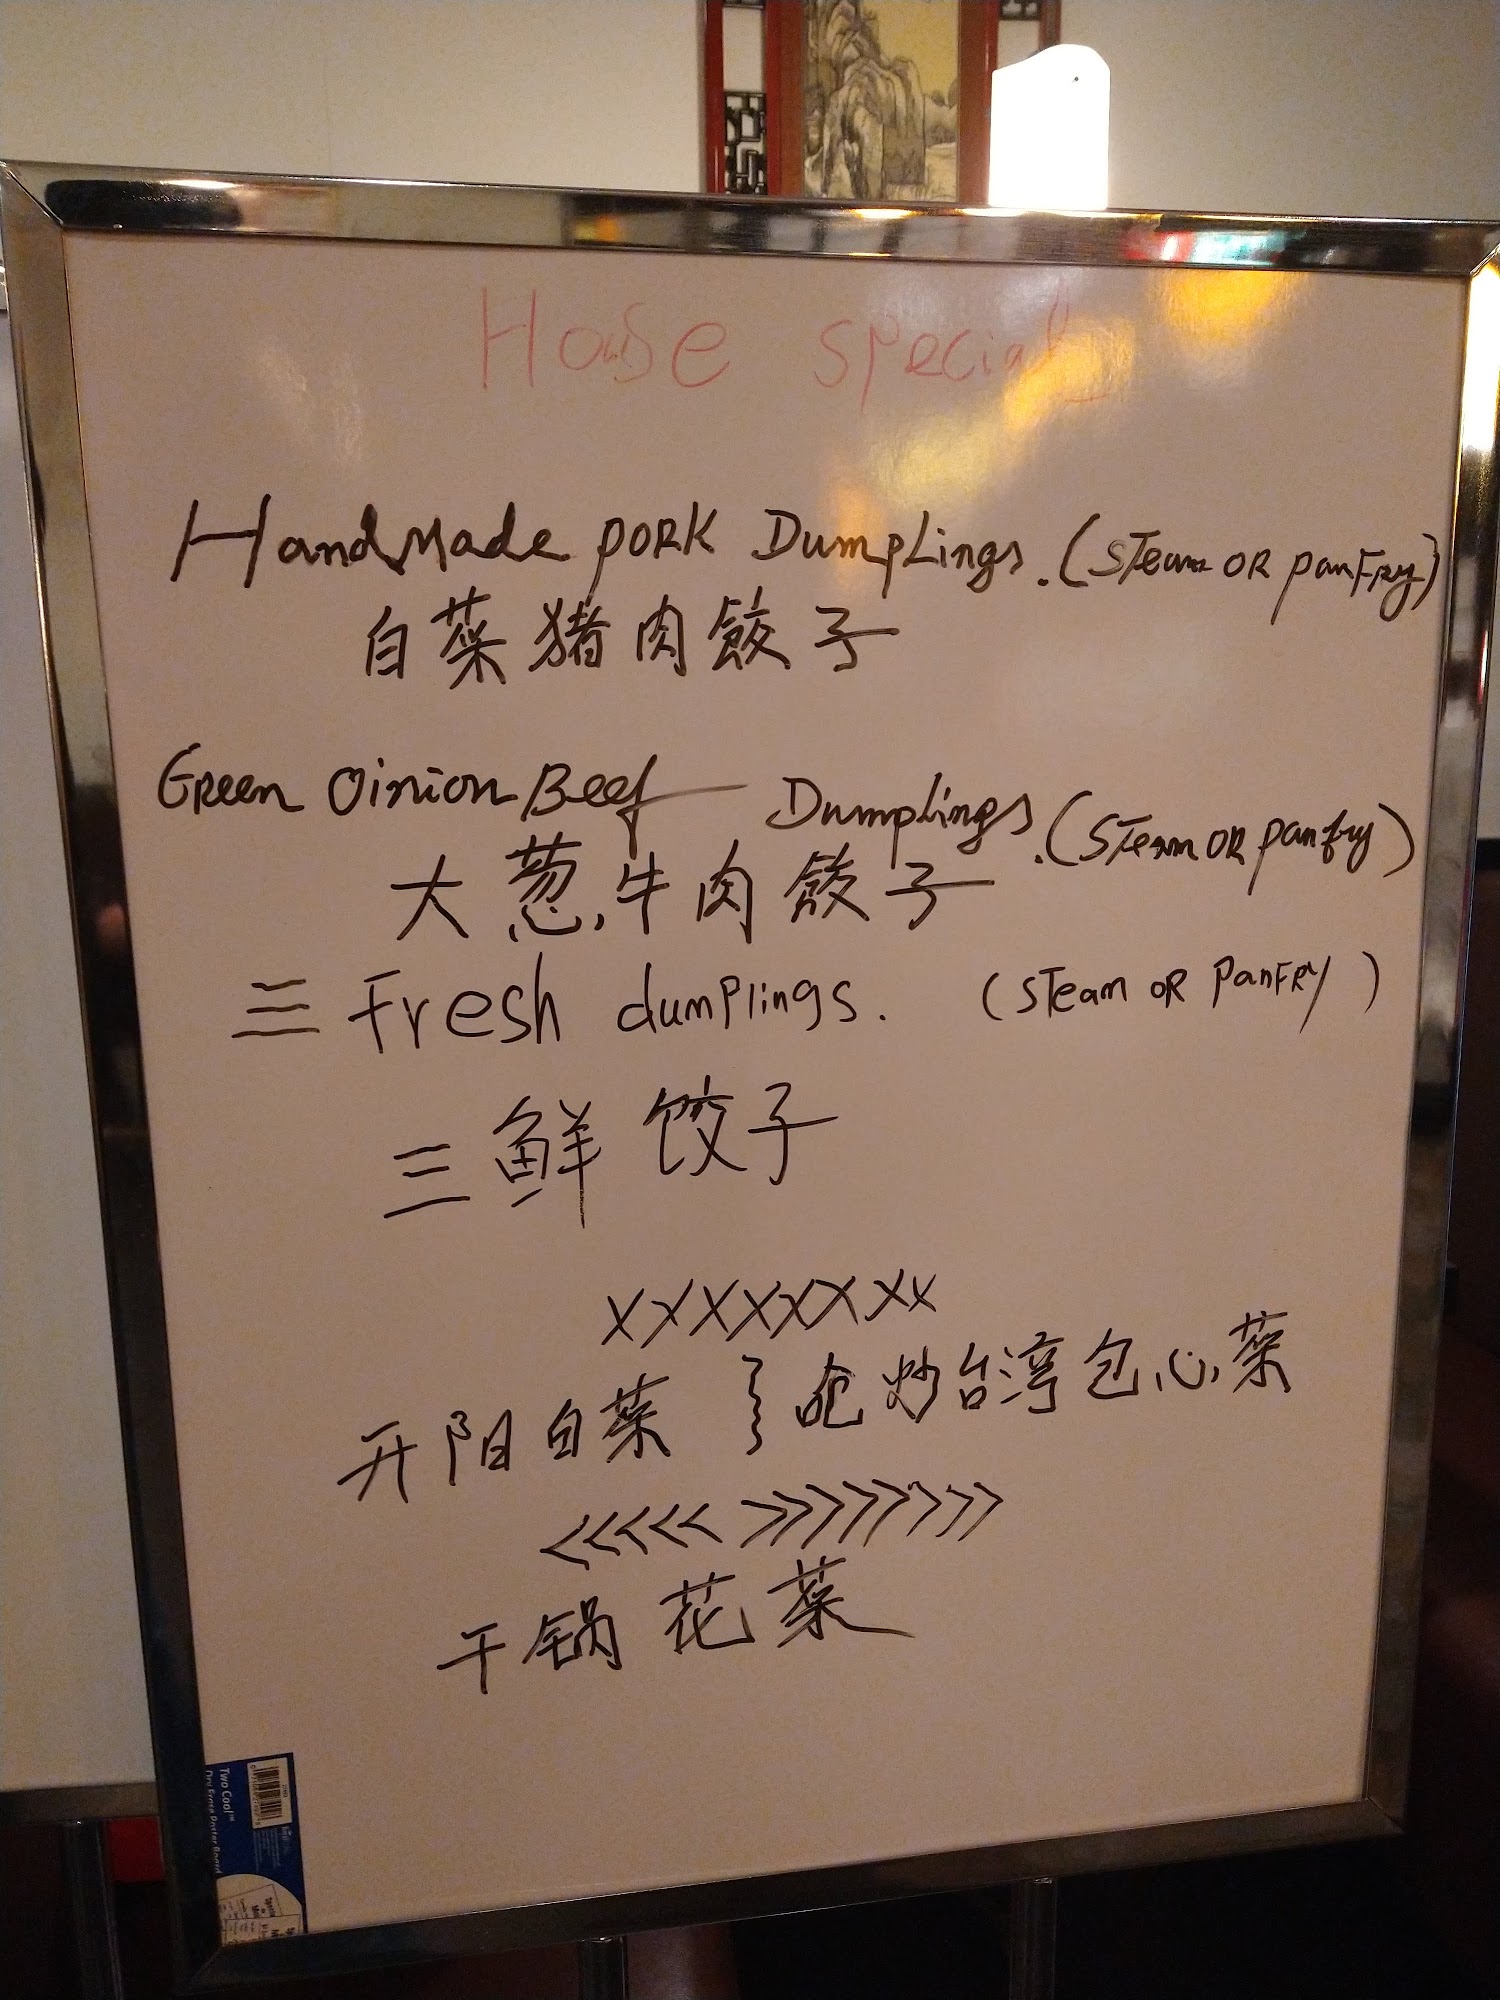 House special
HandMade PORK DumpLings. (STeam OR panFRy)
白菜猪肉餃子
GReen Oinion Beef Dumplings. (STeam OR panfry)
大葱牛肉餃子
三 Fresh dumplings. (STeam OR PanFRY)
三鲜饺子
XXXXXXXX
开阳白菜 炝炒台湾包心菜
<<<<< >>>>>>>>
干锅花菜
Two Cool™
Dry Erase Poster Board